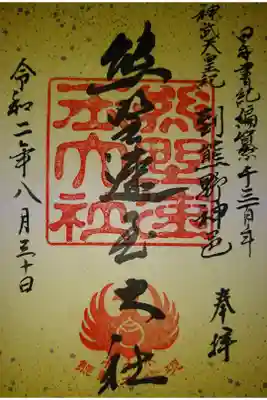 日本書紀編纂千三百年
神武天皇紀 到熊野神邑
奉拝
熊野速玉大社
令和二年八月三十日
熊野速
玉大社